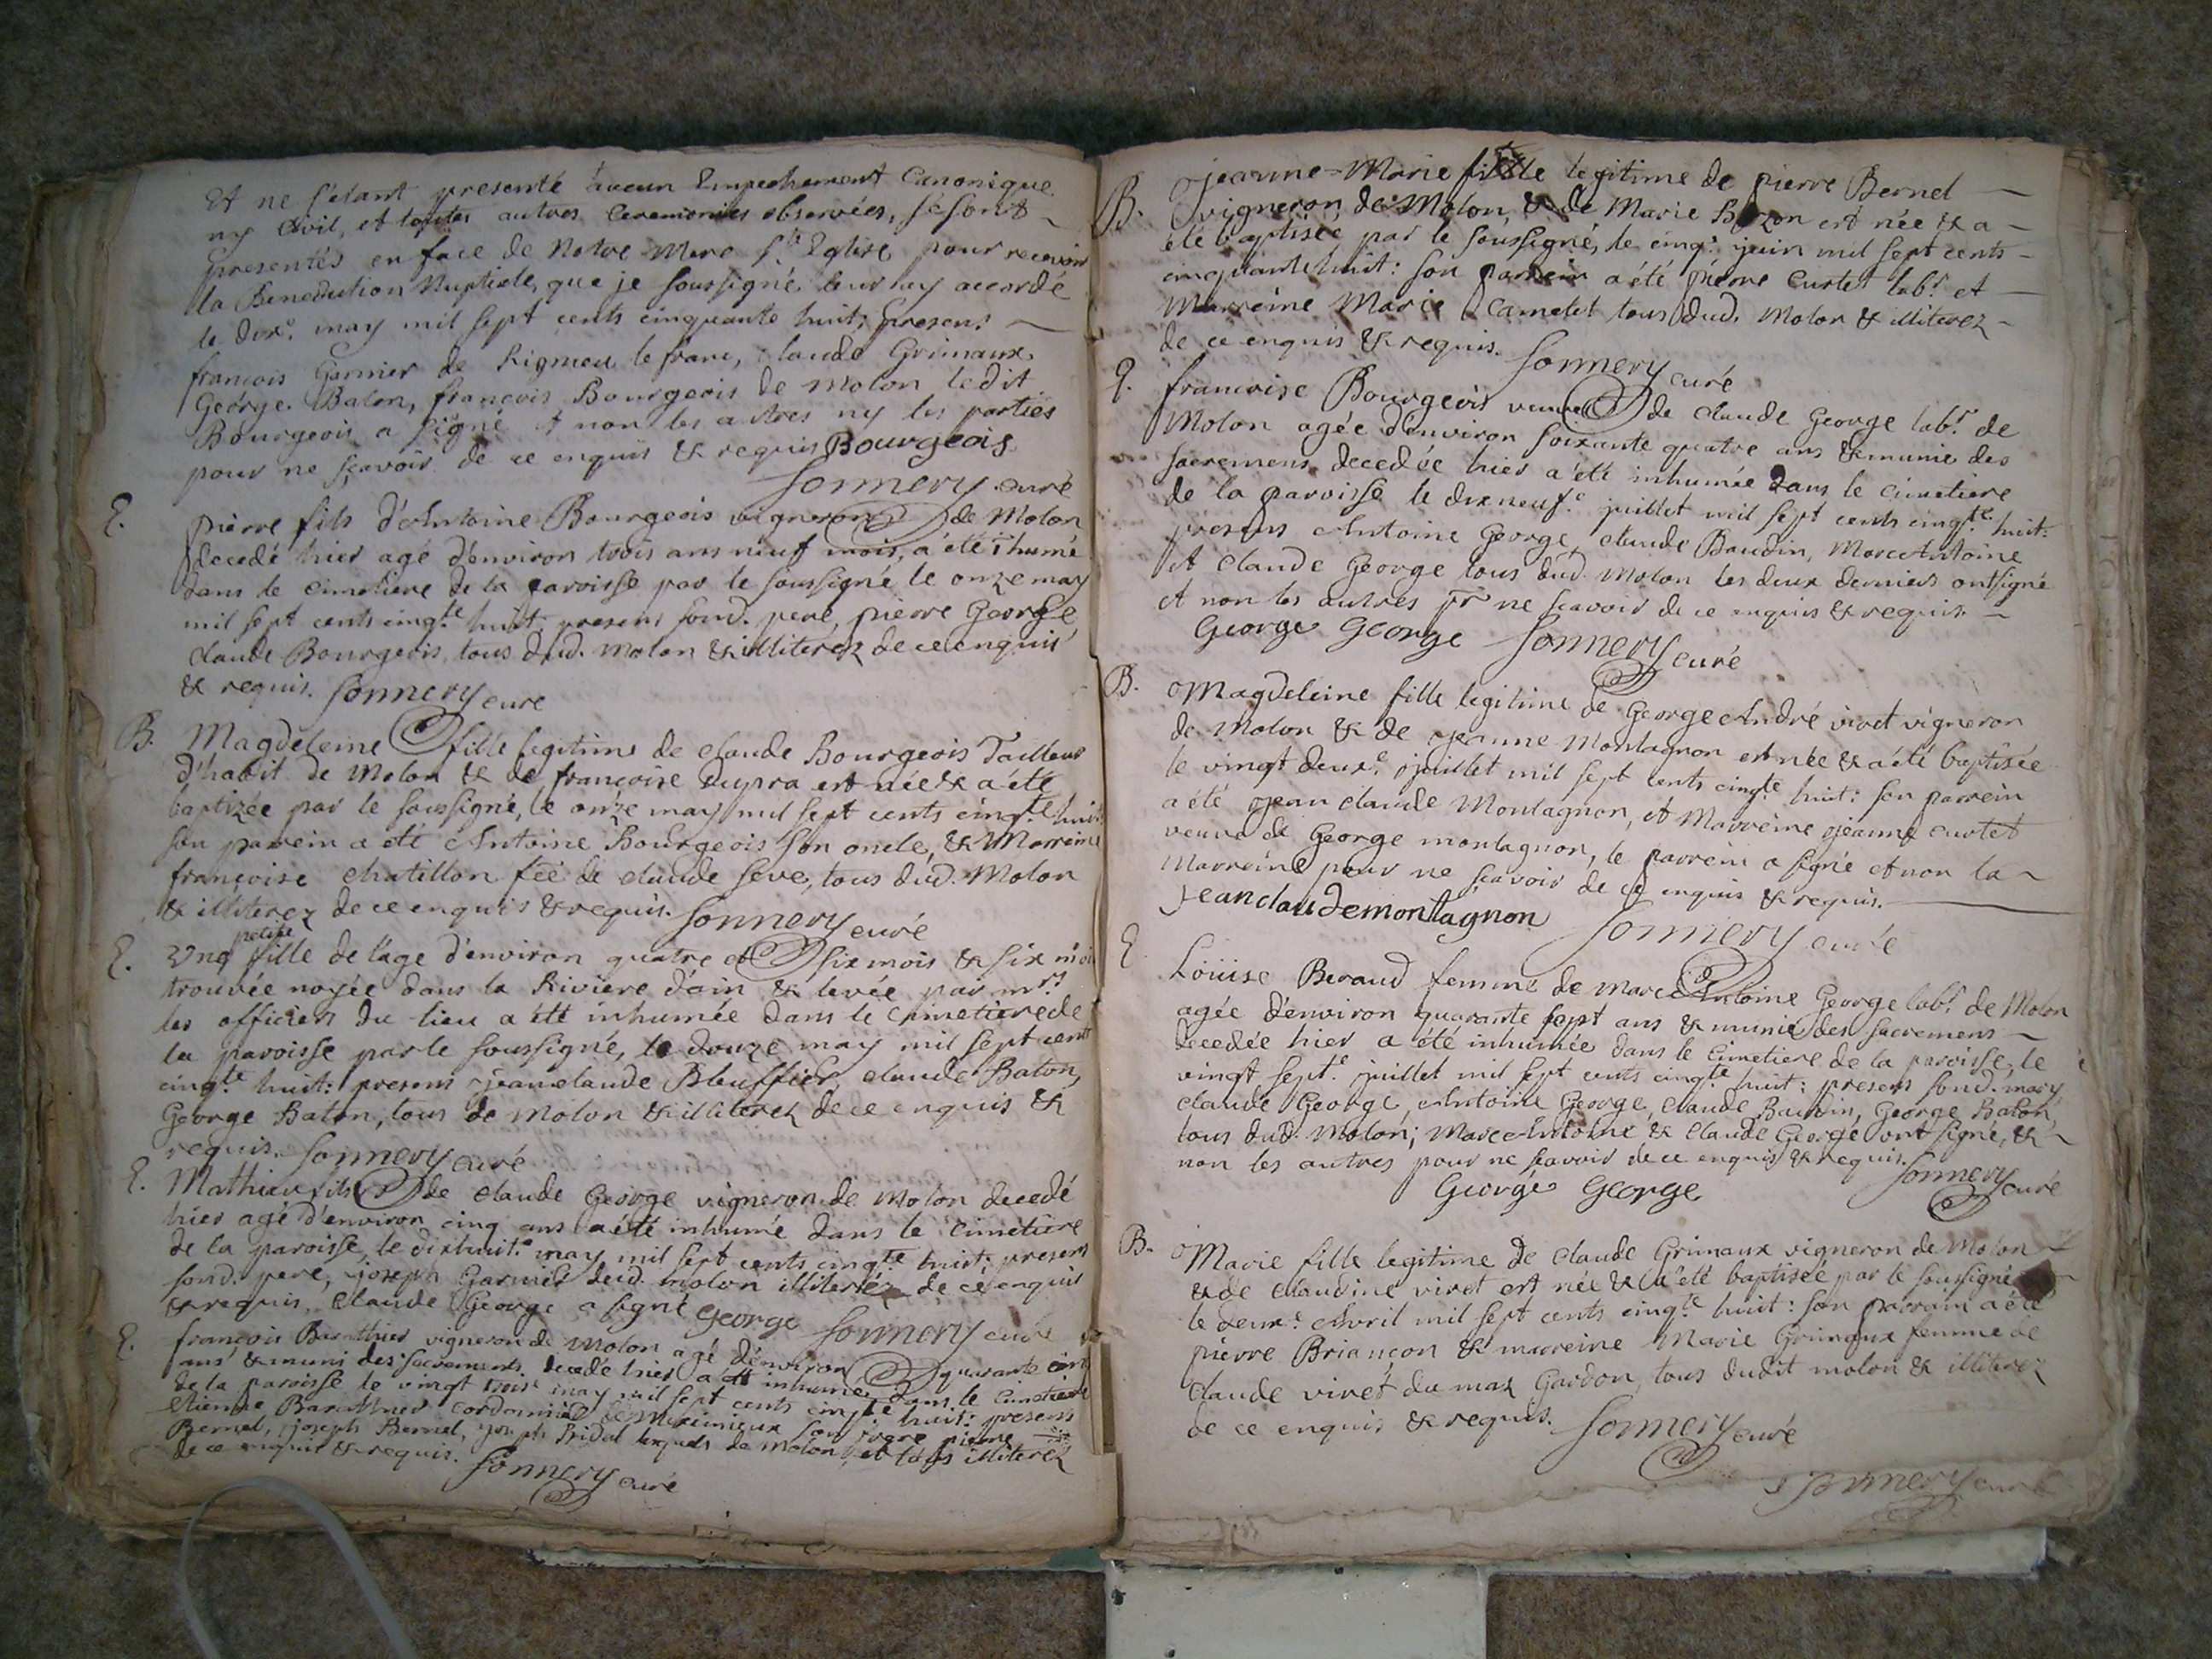 Et ne s'etant presenté aucun Empechement Canonique
ny Civil, et toutes autres Ceremonies observées, se sont
presentés en face de Notre Mere Ste Eglise pour recevoir
la Benediction Nuptiale, que je soussigné leur ay accordé
le dixe may mil sept cents cinquante huit; presens
françois Garnier de Rignieu le franc, Claude Grimaux
George Balon, françois Bourgeois de Molon ledit
Bourgeois a signé et non les autres ny les parties
pour ne sçavoir de ce enquis & requis Bourgeois
Sonnery curé
E. pierre fils d'Antoine Bourgeois vigneron de Molon
decedé hier agé d'environ trois ans neuf mois, a été ihumé
dans le cimetiere de la paroisse par le soussigné le onze may
mil sept cents cinqte huit presens sond. pere, pierre George
Claude Bourgeois, tous dud. Molon & illiterez de ce enquis
& requis. Sonnery curé
B. Magdeleine fille legitime de Claude Bourgeois Tailleur
d'habit de Molon & de françoise Dupra est née & a été
baptizée par le soussigné, le onze may mil sept cents cinqte huit:
son parrein a eté Antoine Bourgeois son oncle, & Marreine
françoise Chatillon fée de Claude Seve, tous dud. Molon
& illiterez de ce enquis & requis. Sonnery curé
petite
E. Une fille de l'age d'environ quatre et six mois & six mois
trouvée noyée dans la Riviere d'ain & levée par mrs
les officiers du lieu a été inhumée dans le cimetiere de
la paroisse par le soussigné, le douze may mil sept cent
cinqte huit: presens jean claude Bleuffier, Claude Balon,
George Balon, tous de Molon & illiterez de ce enquis &
requis. Sonnery curé
E. Mathieu fils de Claude George vigneron de Molon decedé
hier agé d'environ cinq ans a été inhumé dans le cimetiere
de la paroisse, le dixhuite may mil sept cents cinqte huit: presens
sond. pere, joseph Garnier dud. Molon illiterez de ce enquis
& requis, Claude George a signé George Sonnery curé
E. françois Baratthier vigneron de Molon agé d'environ quarante cinq
ans & muni des sacrements, decedé hier a été inhumé dans le cimetiere
de la paroisse le vingt trois may mil sept cents cinqte huit: presens
Etienne Baratthier cordonnier son frere pierre
Bernel, joseph Bernel, de Molon, et tous illiterez
de ce enquis & requis. Sonnery curé
B. Jeanne-Marie fille legitime de pierre Bernel
vigneron de Molon, & de Marie est née & a
été baptisée par le soussigné, le cinqe juin mil sept cents
cinquante huit: son parrein a été pierre Curtet labr et
Marreine Marie Camelet tous dud. Molon & illiterez
de ce enquis & requis. Sonnery curé
E. françoise Bourgeois veuve de Claude George labr de
Molon agée d'environ soixante quatre ans & munie des
sacremens decedée hier a été inhumée Dans le cimetiere
de la paroisse le dixneufe juillet mil sept cents cinqte huit:
presens Antoine George, Claude Baudin, Marc Antoine
et Claude George tous dud. Molon les deux derniers ont signé
et non les autres pr ne sçavoir de ce enquis & requis.
George George Sonnery curé
B. Magdeleine fille legitime de George André viret vigneron
de Molon & de Jeanne Montagnon est née & a été baptisée
le vingt deuxe juillet mil sept cents cinqte huit: son parrein
a été Jean claude Montagnon, et Marreine Jeanne Curtet
veuve de George montagnon, le parrein a signé et non la
Marreine pour ne sçavoir de ce enquis & requis.
jean claude montagnon Sonnery curé
E Loüise Beraud femme de Marc Antoine George labr de Molon
agée d'environ quarante sept ans & munie des sacremens
decedée hier a été inhumée dans le cimetiere de la paroisse, le
vingt septe juillet mil sept cents cinqte huit: presens sond. mary
Claude George, Antoine George, Claude Baudin, George Balon
tous dud. Molon; Marc Antoine & Claude George ont signé, &
non les autres pour ne sçavoir de ce enquis & requis.
George George Sonnery curé
B. Marie fille legitime de Claude Grimaux vigneron de Molon
& de Claudine viret est née & a été baptisée par le soussigné
le deuxe Avril mil sept cents cinqte huit: son parrain a été
pierre Briançon & marreine Marie Grimaux femme de
Claude viret du maz Gardon, tous dudit molon & illiterez
de ce enquis & requis. Sonnery curé
Sonnery curé